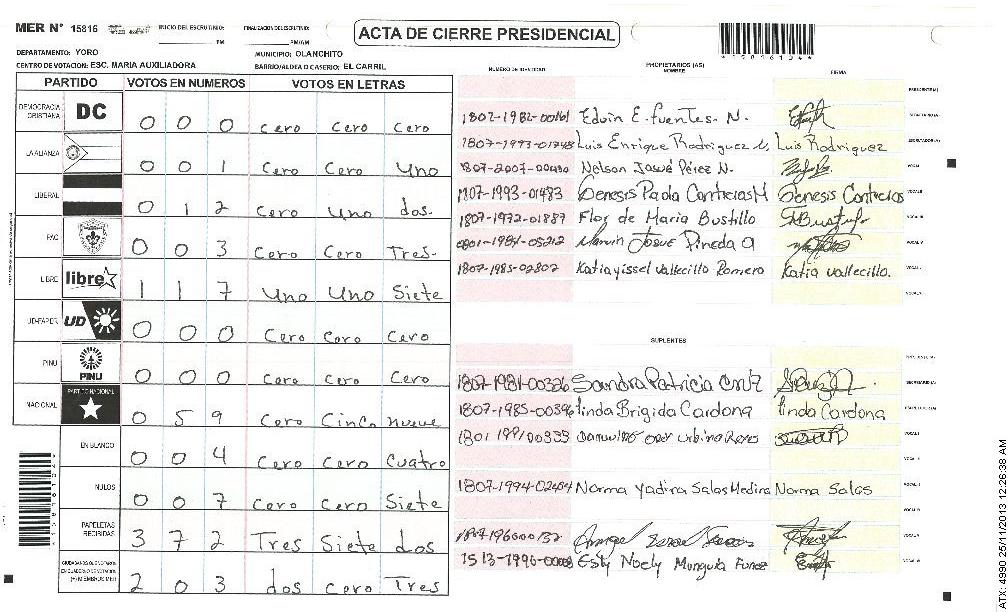 MER N° 15816 INICIO DEL ESCRUTINIO: FINALIZACION DEL ESCRUTINIO:
ACTA DE CIERRE PRESIDENCIAL
DEPARTAMENTO: YORO MUNICIPIO: OLANCHITO
CENTRO DE VOTACION: ESC. MARIA AUXILIADORA BARRIO/ALDEA O CASERIO: EL CARRIL
PARTIDO VOTOS EN NUMEROS VOTOS EN LETRAS
DEMOCRACIA CRISTIANA DC 0 0 0 Cero Cero Cero
LA ALIANZA 0 0 1 Cero Cero Uno
LIBERAL 0 1 2 Cero Uno dos.
PAC 0 0 3 Cero Cero Tres.
LIBRE libre 1 1 7 Uno Uno Siete
UD-FAPER UD 0 0 0 Cero Cero Cero
PINU PINU 0 0 0 Cero Cero Cero
NACIONAL PARTIDO NACIONAL 0 5 9 Cero Cinco nueve
EN BLANCO 0 0 4 Cero Cero Cuatro
NULOS 0 0 7 Cero Cero Siete
PAPELETAS RECIBIDAS 3 7 2 Tres Siete dos
2 0 3 dos Cero Tres
NUMERO DE IDENTIDAD PROPIETARIOS (AS) NOMBRE FIRMA
PRESIDENTE(A)
1802-1982-00161 Edwin E. fuentes. N. SECRETARIO(A)
1807-1993-01748 Luis Enrique Rodriguez Luis Rodriguez
1807-2007-00490 Nelson Josué Pérez N. VOCAL
1807-1993-01483 Genesis Paola Contreras M Genesis Contreras
1807-1972-01887 Flor de Maria Bustillo
0801-1984-05212 Marvin Josue Pineda
1807-1985-02802 Katia yissel vallecillo Romero Katia vallecillo.
SUPLENTES
1807-1981-00326 Sandra Patricia Cruz
1807-1985-00396 linda Brigida Cardona linda Cardona
1807-1994-02464 Norma Yadira Salas Medina Norma Salas
1513-1990-00008 Esly Noely Munguia Funez
ATX: 4990 25/11/2013 12:26:38 AM